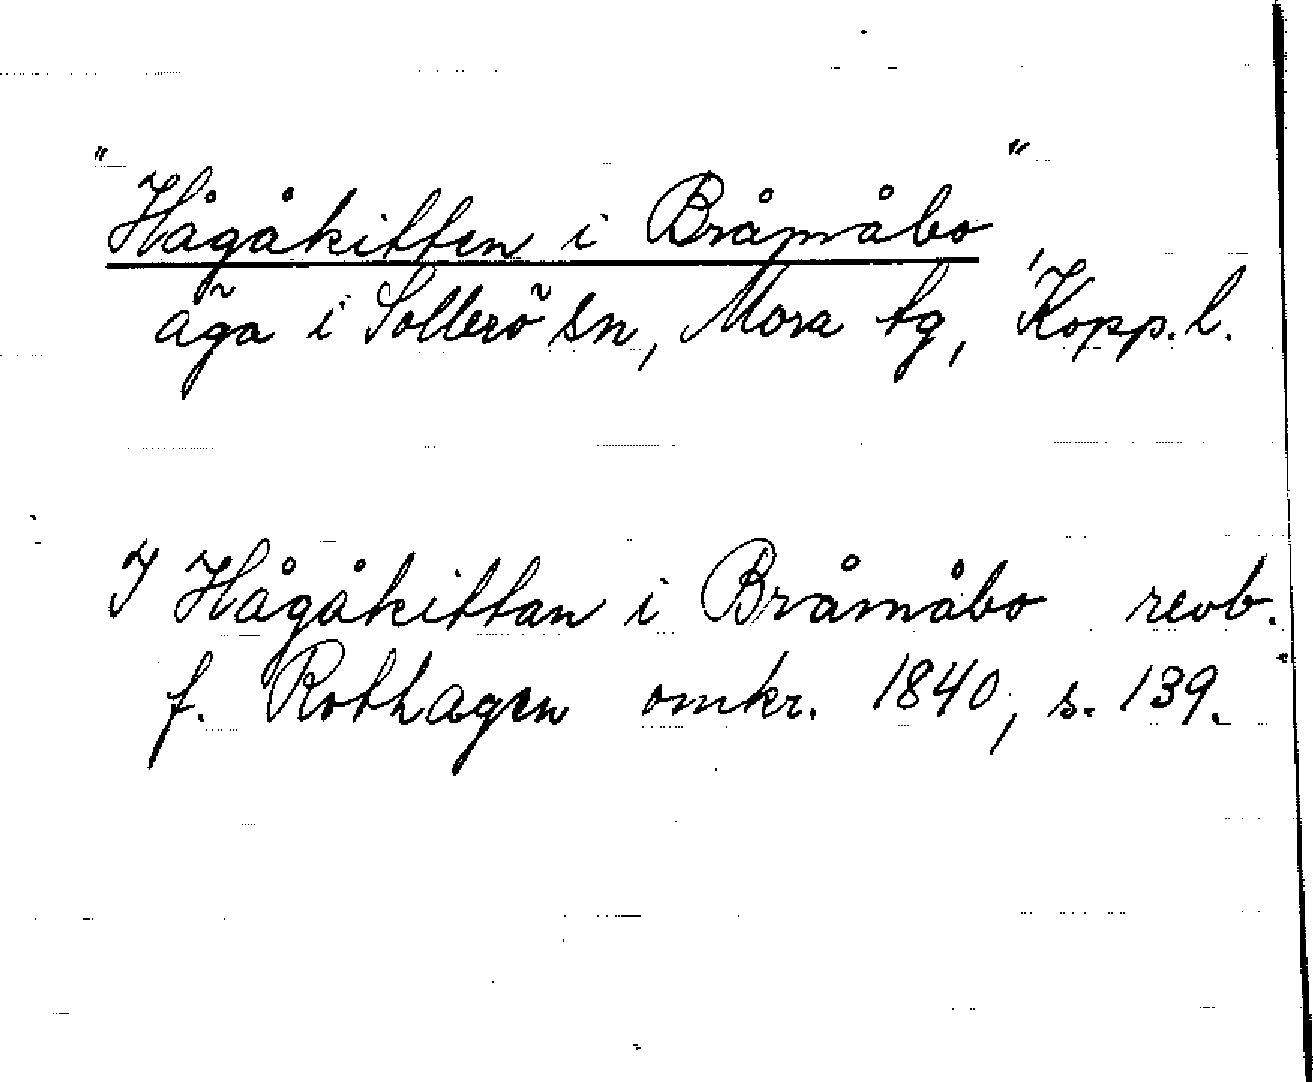 "Hågåkitten i Bråmåbo"
äga i Sollerö sn, Mora tg, Kopp. l.
I Hågåkittan i Bråmåbo revb.
f. Rothagen omkr. 1840, s. 139.